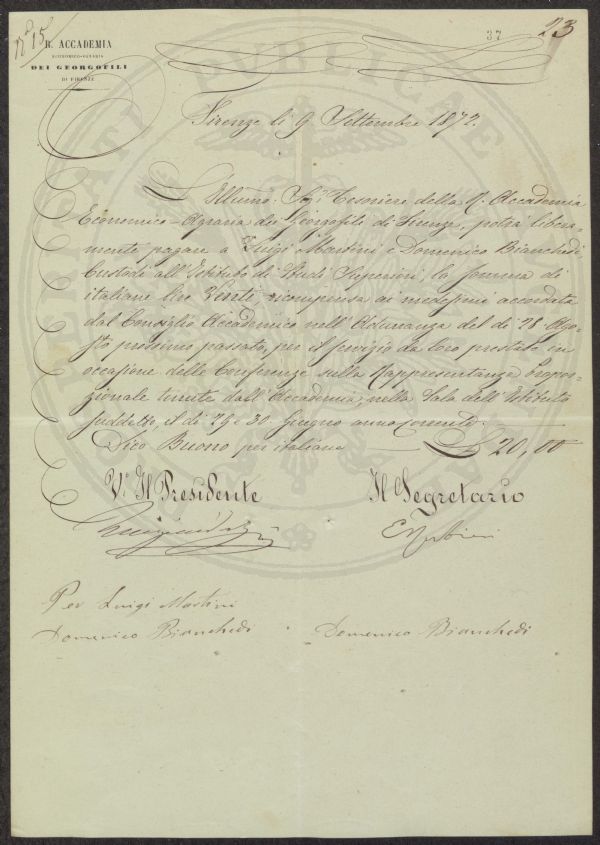 N° 15
37
23
R. ACCADEMIA
ECONOMICO-AGRARIA
DEI GEORGOFILI
DI FIRENZE
PROSPERITATI PUBLICAE
Firenze li 9 Settembre 1872.
L'Illumo. Sigr. Tesoriere della R. Accademia
Economico-Agraria dei Georgofili di Firenze, potrà libera-
mente pagare a Luigi Martini e Domenico Bianchedi
Custodi all'Istituto di Studi Superiori, la somma di
italiane lire Venti, ricompensa ai medesimi accordata
dal Consiglio Accademico nell'Adunanza del dì 28 Ago-
sto prossimo passato, per il servizio da loro prestato in
occasione delle Conferenze sulla Rappresentanza Propor-
zionale tenute dall'Accademia, nella Sala dell'Istituto
suddetto, il dì 29 e 30 Giugno anno corrente.
Dico Buono per italiane £ 20,00
V. Il Presidente
Il Segretario
Per Luigi Martini
Domenico Bianchedi
Domenico Bianchedi